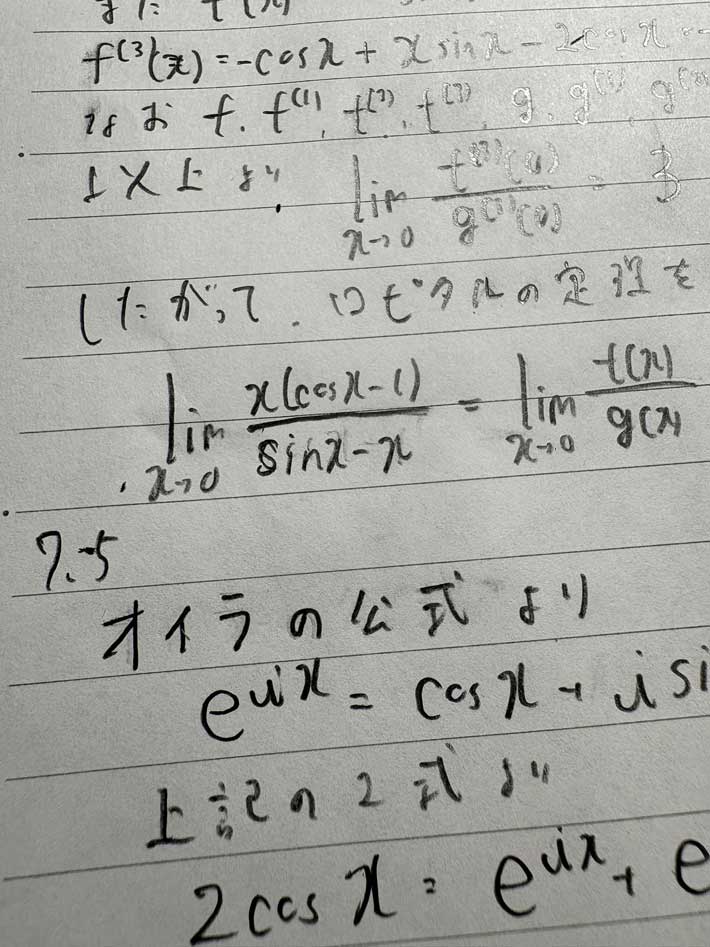 f⁽³⁾(x) = -cosx + x sinx - 2cosx
なお f, f⁽¹⁾, f⁽²⁾, f⁽³⁾, g, g⁽¹⁾, g⁽²⁾
以上より, lim_{x→0} f⁽³⁾(x)/g⁽³⁾(x) = 3
したがって, ロピタルの定理を
lim_{x→0} x(cosx-1)/(sinx-x) = lim_{x→0} f(x)/g(x)
7.5
オイラの公式より
e^{ix} = cosx + i si
上記の2式より
2cosx = e^{ix} + e